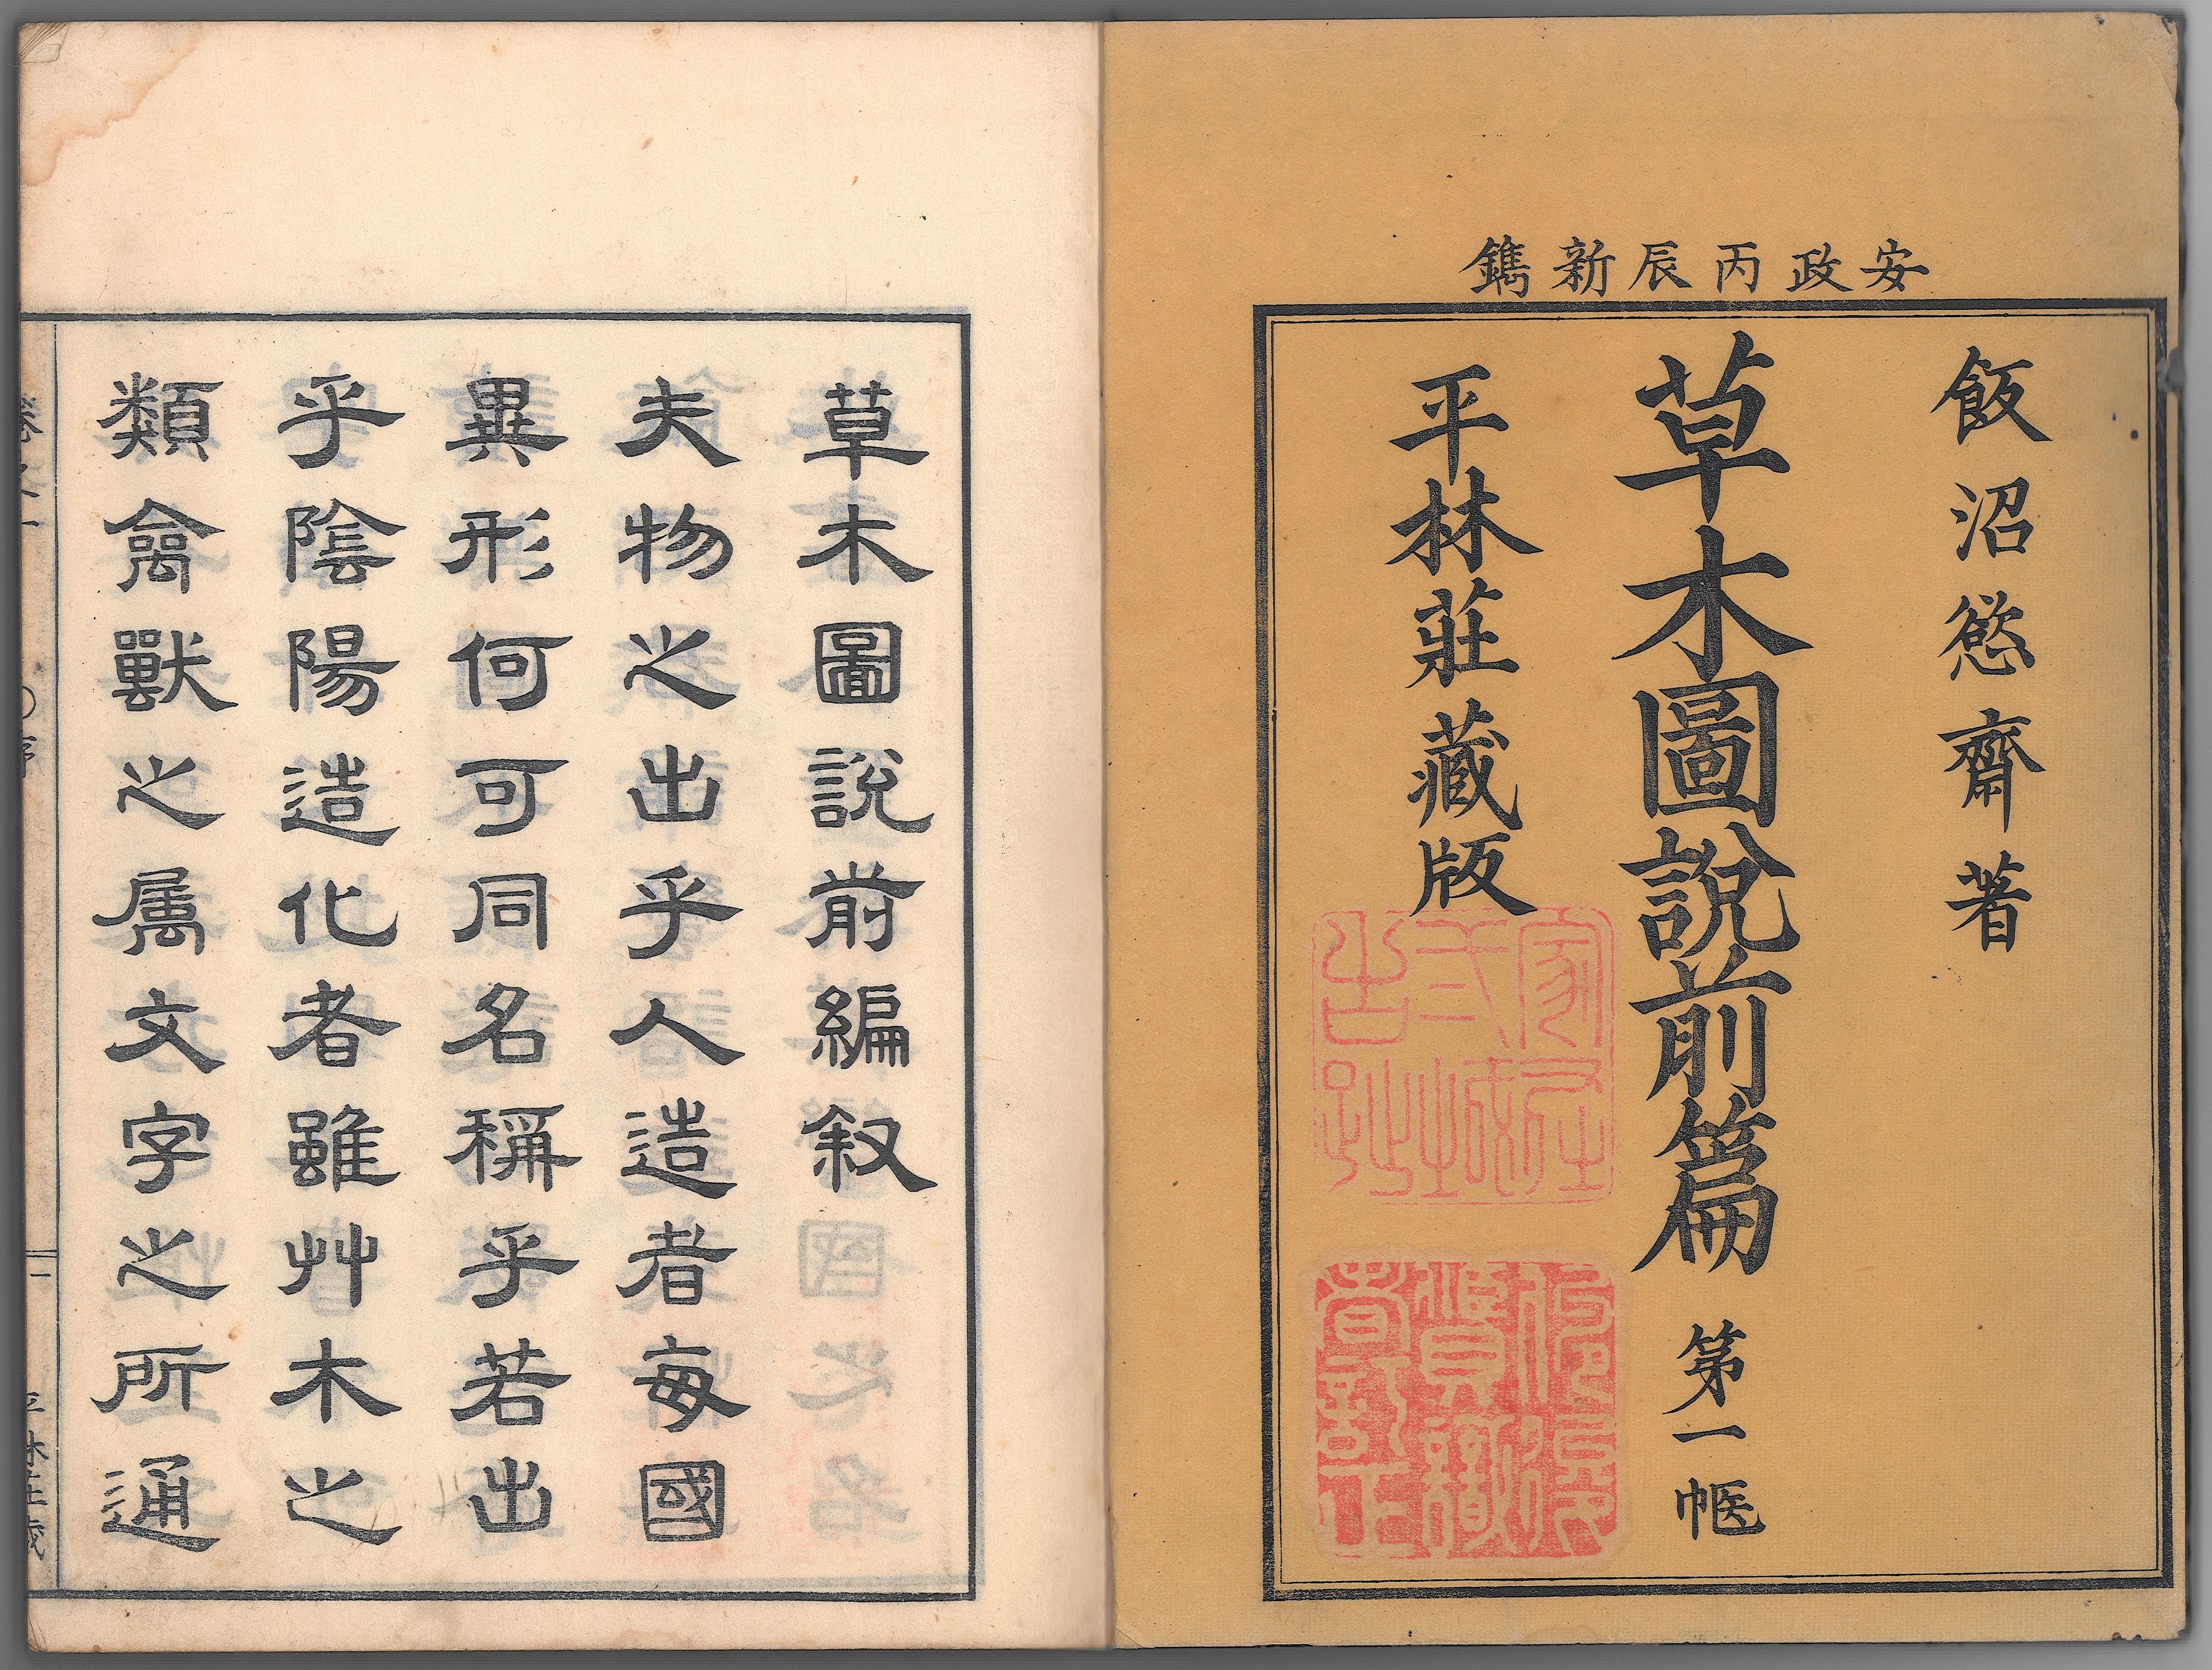 安政丙辰新鐫
飯沼慾齋著
草木圖說前篇 第一帙
平林莊藏版
草木圖說前編叙
夫物之出乎人造者每國
異形何可同名稱乎若出
乎陰陽造化者雖艸木之
類禽獸之属文字之所通